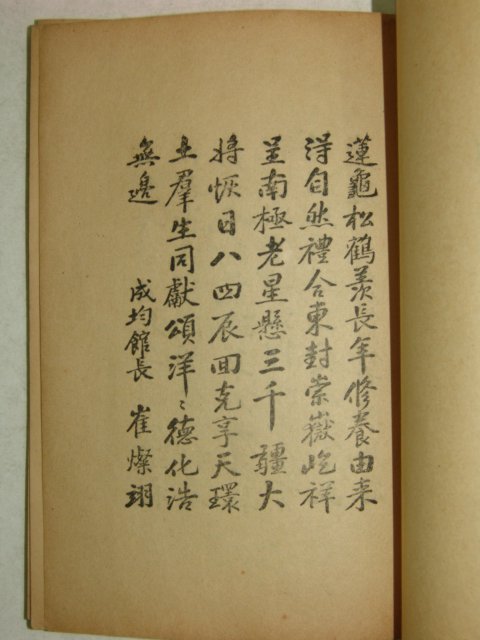 蓮龜松鶴羨長年修養由来
淂自然禮合東封崇嶽屹祥
呈南極老星懸三千疆大
將恢日八四辰回克享天環
土羣生同獻頌洋〻德化浩
無邊
成均館長 崔燦翊